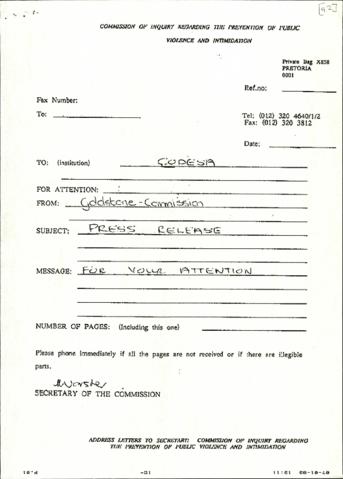 [92]
COMMISSION OF INQUIRY REGARDING THE PREVENTION OF PUBLIC
VIOLENCE AND INTIMIDATION
Private Bag X858
PRETORIA
0001
Ref.no:
Fax Number:
To:
Tel: (012) 320 4640/1/2
Fax: (012) 320 3812
Date:
TO: (institution) CODESA
FOR ATTENTION:
FROM: Goldstone-Commission
SUBJECT: PRESS RELEASE
MESSAGE: FOR YOUR ATTENTION
NUMBER OF PAGES: (including this one)
Please phone immediately if all the pages are not received or if there are illegible
parts.
SECRETARY OF THE COMMISSION
ADDRESS LETTERS TO SECRETARY: COMMISSION OF INQUIRY REGARDING
THE PREVENTION OF PUBLIC VIOLENCE AND INTIMIDATION